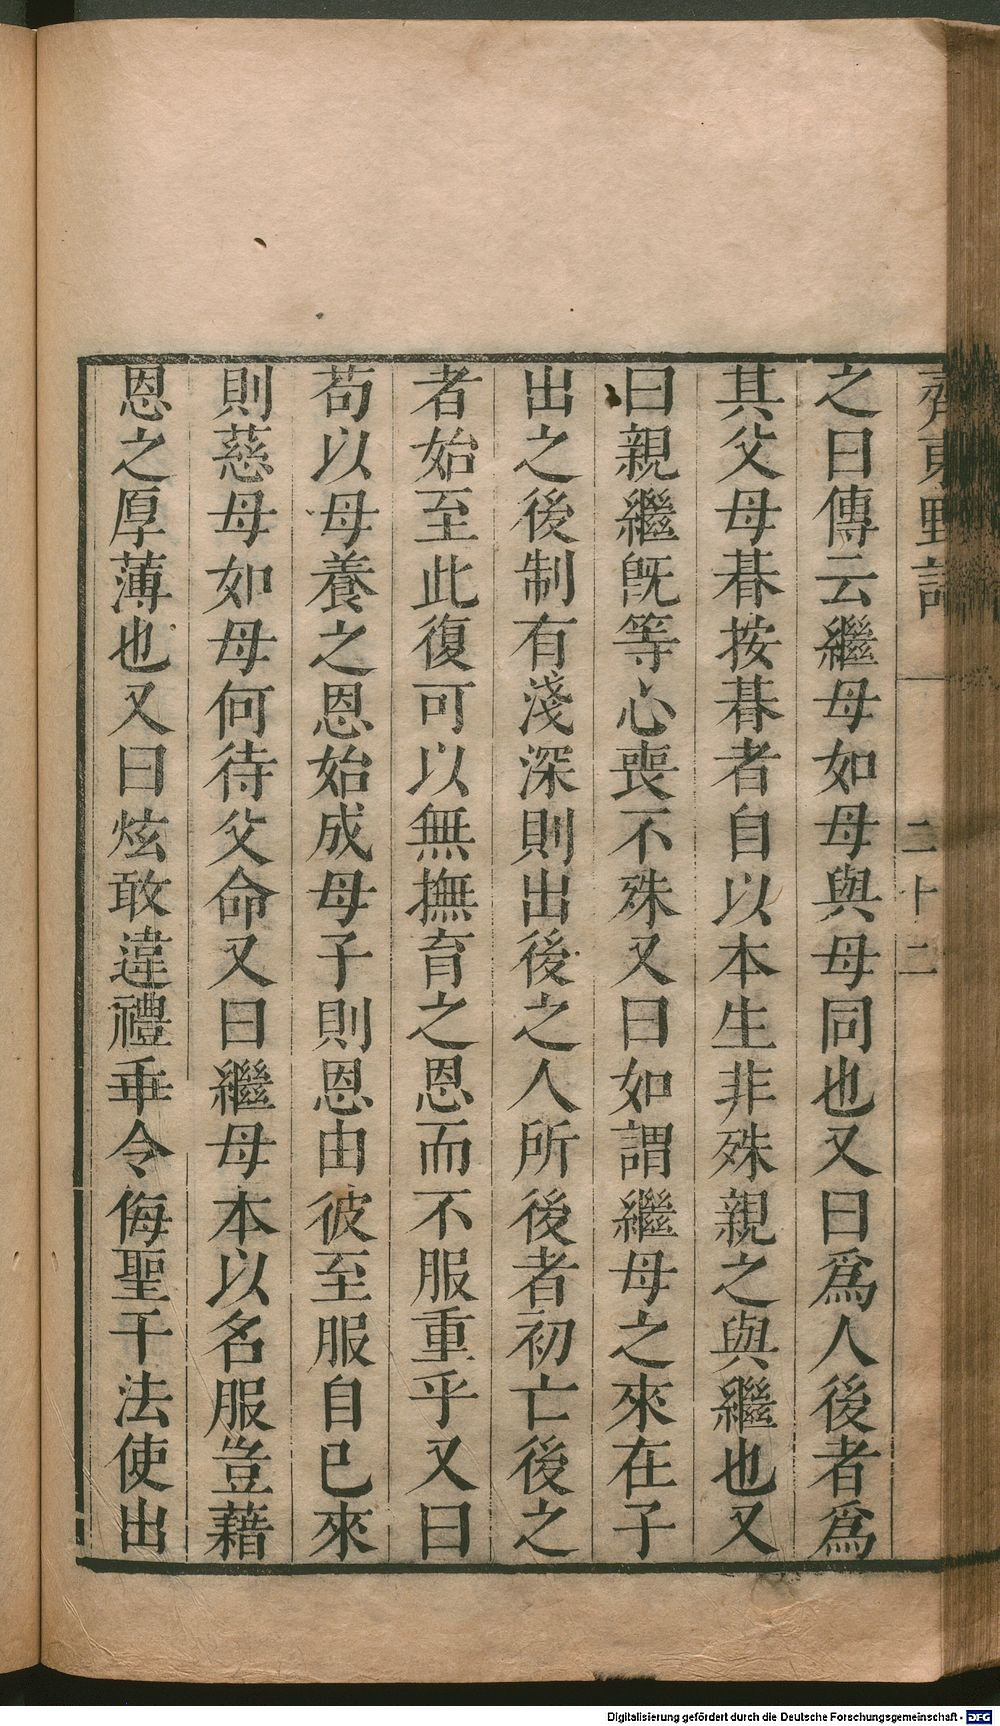 齊東野語 二十二
之曰傳云繼母如母與母同也又曰爲人後者爲
其父母朞按朞者自以本生非殊親之與繼也又
曰親繼旣等心喪不殊又曰如謂繼母之來在子
出之後制有淺深則出後之人所後者初亡後之
者始至此復可以無撫育之恩而不服重乎又曰
苟以母養之恩始成母子則恩由彼至服自已來
則慈母如母何待父命又曰繼母本以名服豈藉
恩之厚薄也又曰炫敢違禮乖令侮聖干法使出
Digitalisierung gefördert durch die Deutsche Forschungsgemeinschaft - DFG